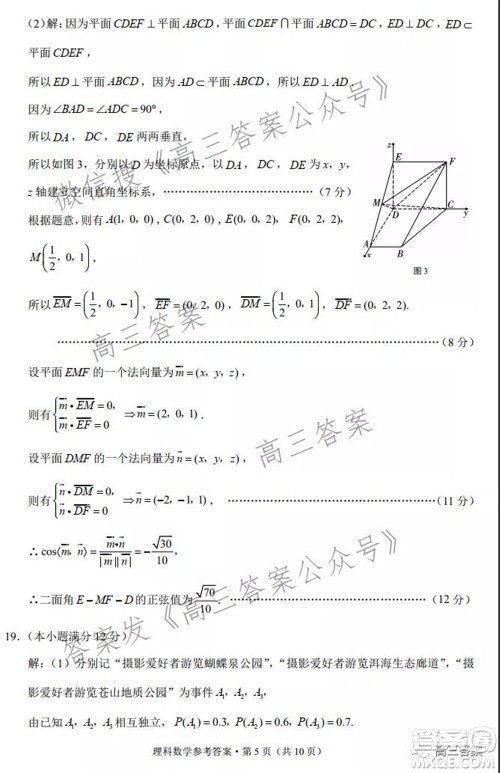 (2)解:因为平面CDEF⊥平面ABCD,平面CDEF∩平面ABCD=DC,ED⊥DC,ED⊂
平面CDEF,
所以ED⊥平面ABCD,因为AD⊂平面ABCD,所以ED⊥AD.
因为∠BAD=∠ADC=90°,
所以DA,DC,DE两两垂直,
所以如图3,分别以D为坐标原点,以DA,DC,DE为x,y,
z轴建立空间直角坐标系,……………………………(7分)
根据题意,则有A(1,0,0),C(0,2,0),E(0,0,2),F(0,2,2),
M(1/2,0,1),
z
E
F
M
D
C
y
A
B
x
图3
所以EM=(1/2,0,-1),EF=(0,2,0),DM=(1/2,0,1),DF=(0,2,2).
……………………………(8分)
设平面EMF的一个法向量为m=(x,y,z),
则有{m·EM=0, m·EF=0 ⇒m=(2,0,1).
设平面DMF的一个法向量为n=(x,y,z),
则有{n·DM=0, n·DF=0 ⇒n=(-2,-1,1),……………………………(11分)
∴cos⟨m,n⟩=m·n/|m||n|=-√30/10,
∴二面角E-MF-D的正弦值为√70/10.……………………………(12分)
19.(本小题满分12分)
解:(1)分别记“摄影爱好者游览蝴蝶泉公园”,“摄影爱好者游览洱海生态廊道”,“摄
影爱好者游览苍山地质公园”为事件A₁,A₂,A₃,
由已知A₁,A₂,A₃相互独立,P(A₁)=0.3,P(A₂)=0.6,P(A₃)=0.7.
理科数学参考答案·第5页(共10页)
微信搜《高三答案公众号》
高三答案
高三答案
答案发《高三答案公众号》
高三答案